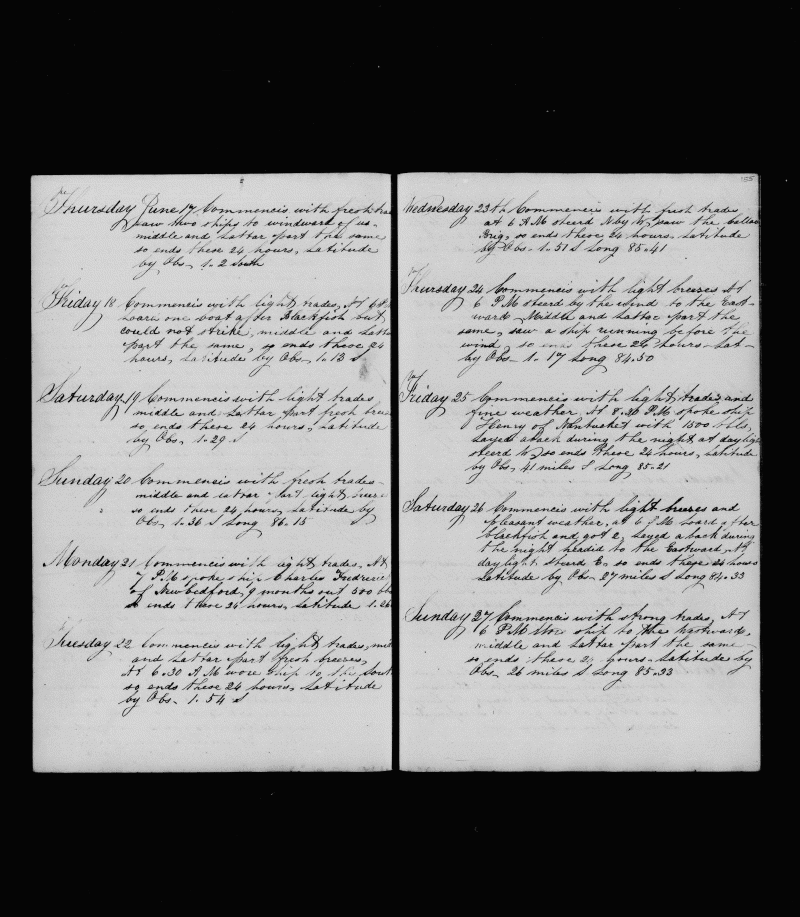 Thursday June 17 Commencis with fresh trad
saw two ships to windward of us-
middle and Lattar part the same
so ends these 24 hours, Latitude
by Obs- 1..2 South
Friday 18 Commencis with light trades, At 6
Loare one boat after Blackfish but
could not strike, middle and Latta
part the same, so ends these 24
hours, Latitude by Obs- 1..13 S
Saturday 19 Commencis with light trades
middle and Lattar part fresh bree
so ends these 24 hours, Latitude
by Obs- 1..29 S
Sunday 20 Commencis with fresh trades-
middle and lattar part light breez
so ends these 24 hours, Latitude by
Obs, 1..36 S Long 86.15
Monday 21 Commencis with light trades, At
7 P.M spoke ship Charles Fredrerie
of New bedford, 9 months out 500 bbl
so ends these 24 hours, Latitude 1..26
Tuesday 22 Commencis with light trades, mid
and Lattar part fresh breezes,
At 6.30 A M wore ship to the Sout
so ends these 24 hours, Latitude
by Obs- 1..54 S
155
Wednesday 23th Commencis with fresh trades
at 6 A M steerd N by W, saw the
Brig, so ends these 24 hours, Latitude
by Obs- 1..51 S Long 85..41
Thursday 24 Commencis with light breezes At
6 P M steerd by the wind to the East-
ward Middle and Lattar part the
same, saw a ship running before the
wind, so ends these 24 hours- Lat-
by Obs 1..17 Long 84.50
Friday 25 Commencis with light trades and
fine weather At 8.30 P.M spoke ship
Henry of Nantucket with 1500 bbls,
Layed aback during the night, at daylight
steerd W, so ends these 24 hours, Latitude
by Obs, 41 miles S Long, 85-21
Saturday 26 Commencis with light breezes and
pleasant weather, at 6 P M Loard after
blackfish and got 2, Layed aback during
the night headid to the Eastward At
day light Steerd E, so ends these 24 hours
Latitude by Obs- 27 miles S Long 84.33
Sunday 27 Commencis with strong trades, At
6 P.M wore ship to the westward,
middle and Lattar part the same
so ends these 24 hours- Latitude by
Obs- 26 miles S Long 85.33